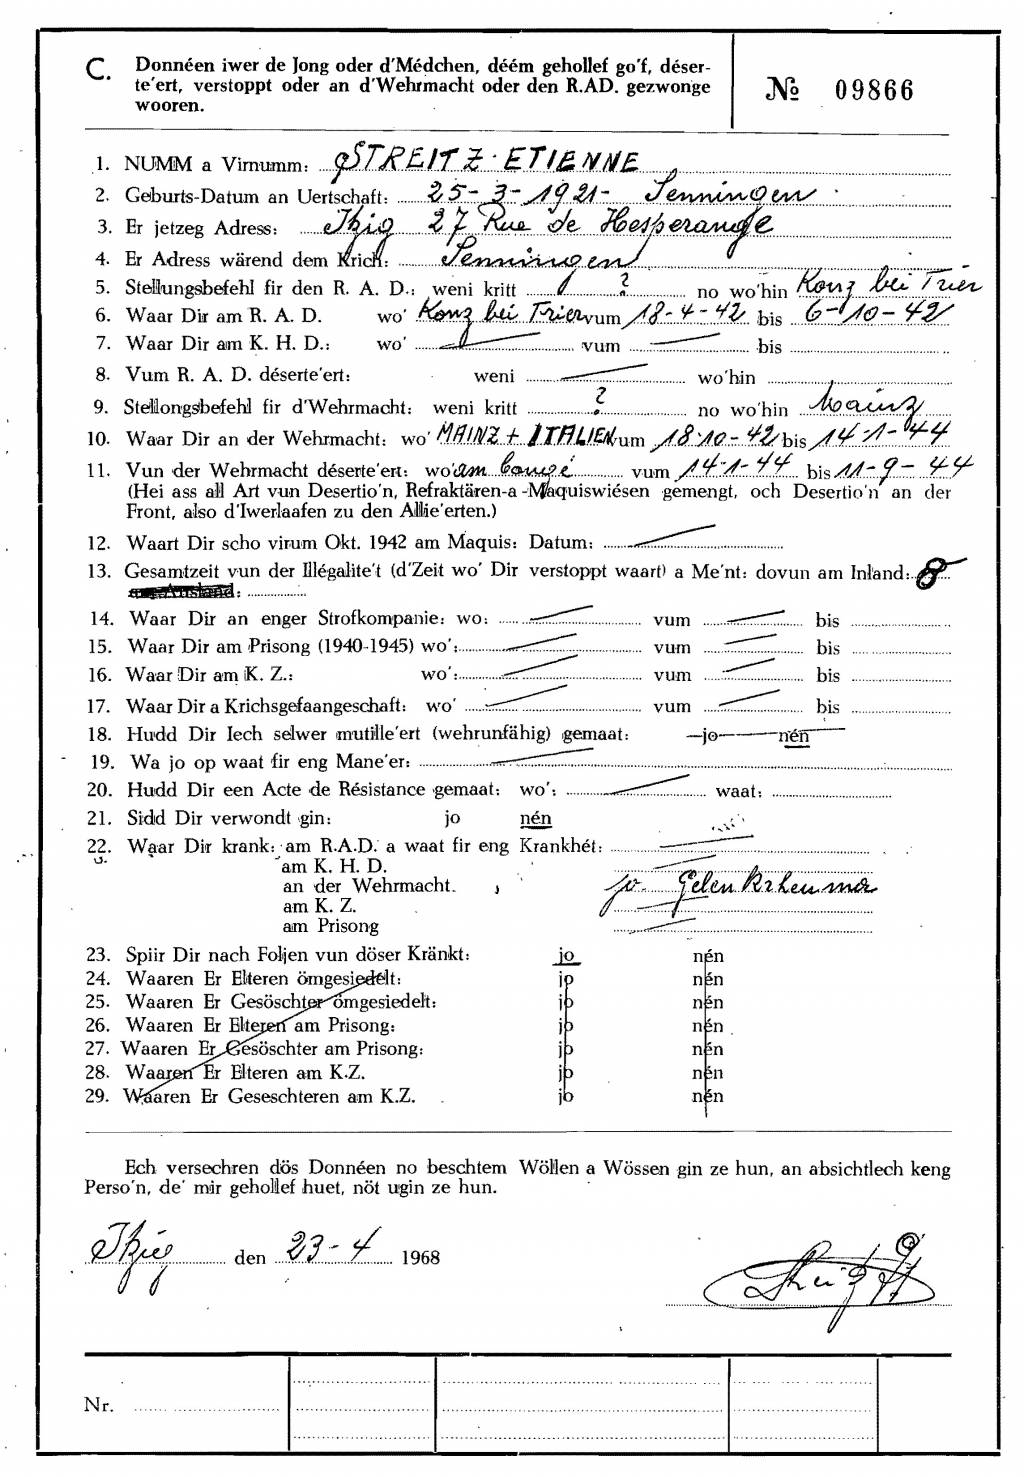 C. Donnéen iwer de Jong oder d'Médchen, déém gehollef go'f, déser-
te'ert, verstoppt oder an d'Wehrmacht oder den R.AD. gezwonge
wooren.
№ 09866
1. NUMM a Virnumm: STREITZ · ETIENNE
2. Geburts-Datum an Uertschaft: 25-3-1921- Senningen
3. Er jetzeg Adress: Itzig 27 Rue de Hesperange
4. Er Adress wärend dem Krich: Senningen
5. Stellungsbefehl fir den R. A. D.: weni kritt ? no wo'hin Konz bei Trier
6. Waar Dir am R. A. D. wo' Konz bei Trier vum 18-4-42 bis 6-10-42
7. Waar Dir am K. H. D.: wo' vum bis
8. Vum R. A. D. déserte'ert: weni wo'hin
9. Stellongsbefehl fir d'Wehrmacht: weni kritt ? no wo'hin Mainz
10. Waar Dir an der Wehrmacht: wo' MAINZ + ITALIEN um 18-10-42 bis 14-1-44
11. Vun der Wehrmacht déserte'ert: wo' am Congé vum 14-1-44 bis 11-9-44
(Hei ass all Art vun Desertio'n, Refraktären-a -Maquiswiésen gemengt, och Desertio'n an der
Front, also d'Iwerlaafen zu den Allie'erten.)
12. Waart Dir scho virum Okt. 1942 am Maquis: Datum:
13. Gesamtzeit vun der Illégalite't (d'Zeit wo' Dir verstoppt waart) a Me'nt: dovun am Inland: 8
14. Waar Dir an enger Strofkompanie: wo: vum bis
15. Waar Dir am Prison (1940-1945) wo': vum bis
16. Waar Dir am K. Z.: wo': vum bis
17. Waar Dir a Krichsgefaangeschaft: wo' vum bis
18. Hudd Dir Iech selwer mutille'ert (wehrunfähig) gemaat: jo nén
19. Wa jo op waat fir eng Mane'er:
20. Hudd Dir een Acte de Résistance gemaat: wo': waat:
21. Sidd Dir verwondt gin: jo nén
22. Waar Dir krank: am R.A.D. a waat fir eng Krankhét:
am K. H. D.
an der Wehrmacht. jo. Gelenkrheuma
am K. Z.
am Prisong
23. Spiir Dir nach Foljen vun döser Kränkt: jo nén
24. Waaren Er Elteren ömgesiedelt: jo nén
25. Waaren Er Gesöschter ömgesiedelt: jo nén
26. Waaren Er Elteren am Prisong: jo nén
27. Waaren Er Gesöschter am Prisong: jo nén
28. Waaren Er Elteren am K.Z. jo nén
29. Waaren Er Geseschteren am K.Z. jo nén
Ech versechren dös Donnéen no beschtem Wöllen a Wössen gin ze hun, an absichtlech keng
Perso'n, de' mir gehollef huet, nöt ugin ze hun.
Itzig den 23-4 1968
Nr.